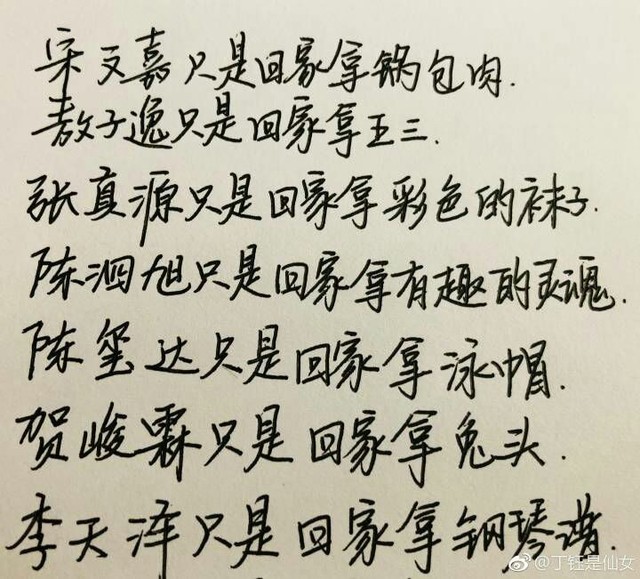 宋文嘉只是回家拿锅包肉.
敖子逸只是回家拿王三.
张真源只是回家拿彩色的袜子.
陈泗旭只是回家拿有趣的灵魂.
陈玺达只是回家拿泳帽.
贺峻霖只是回家拿兔头.
李天泽只是回家拿钢琴谱.
@丁钰是仙女